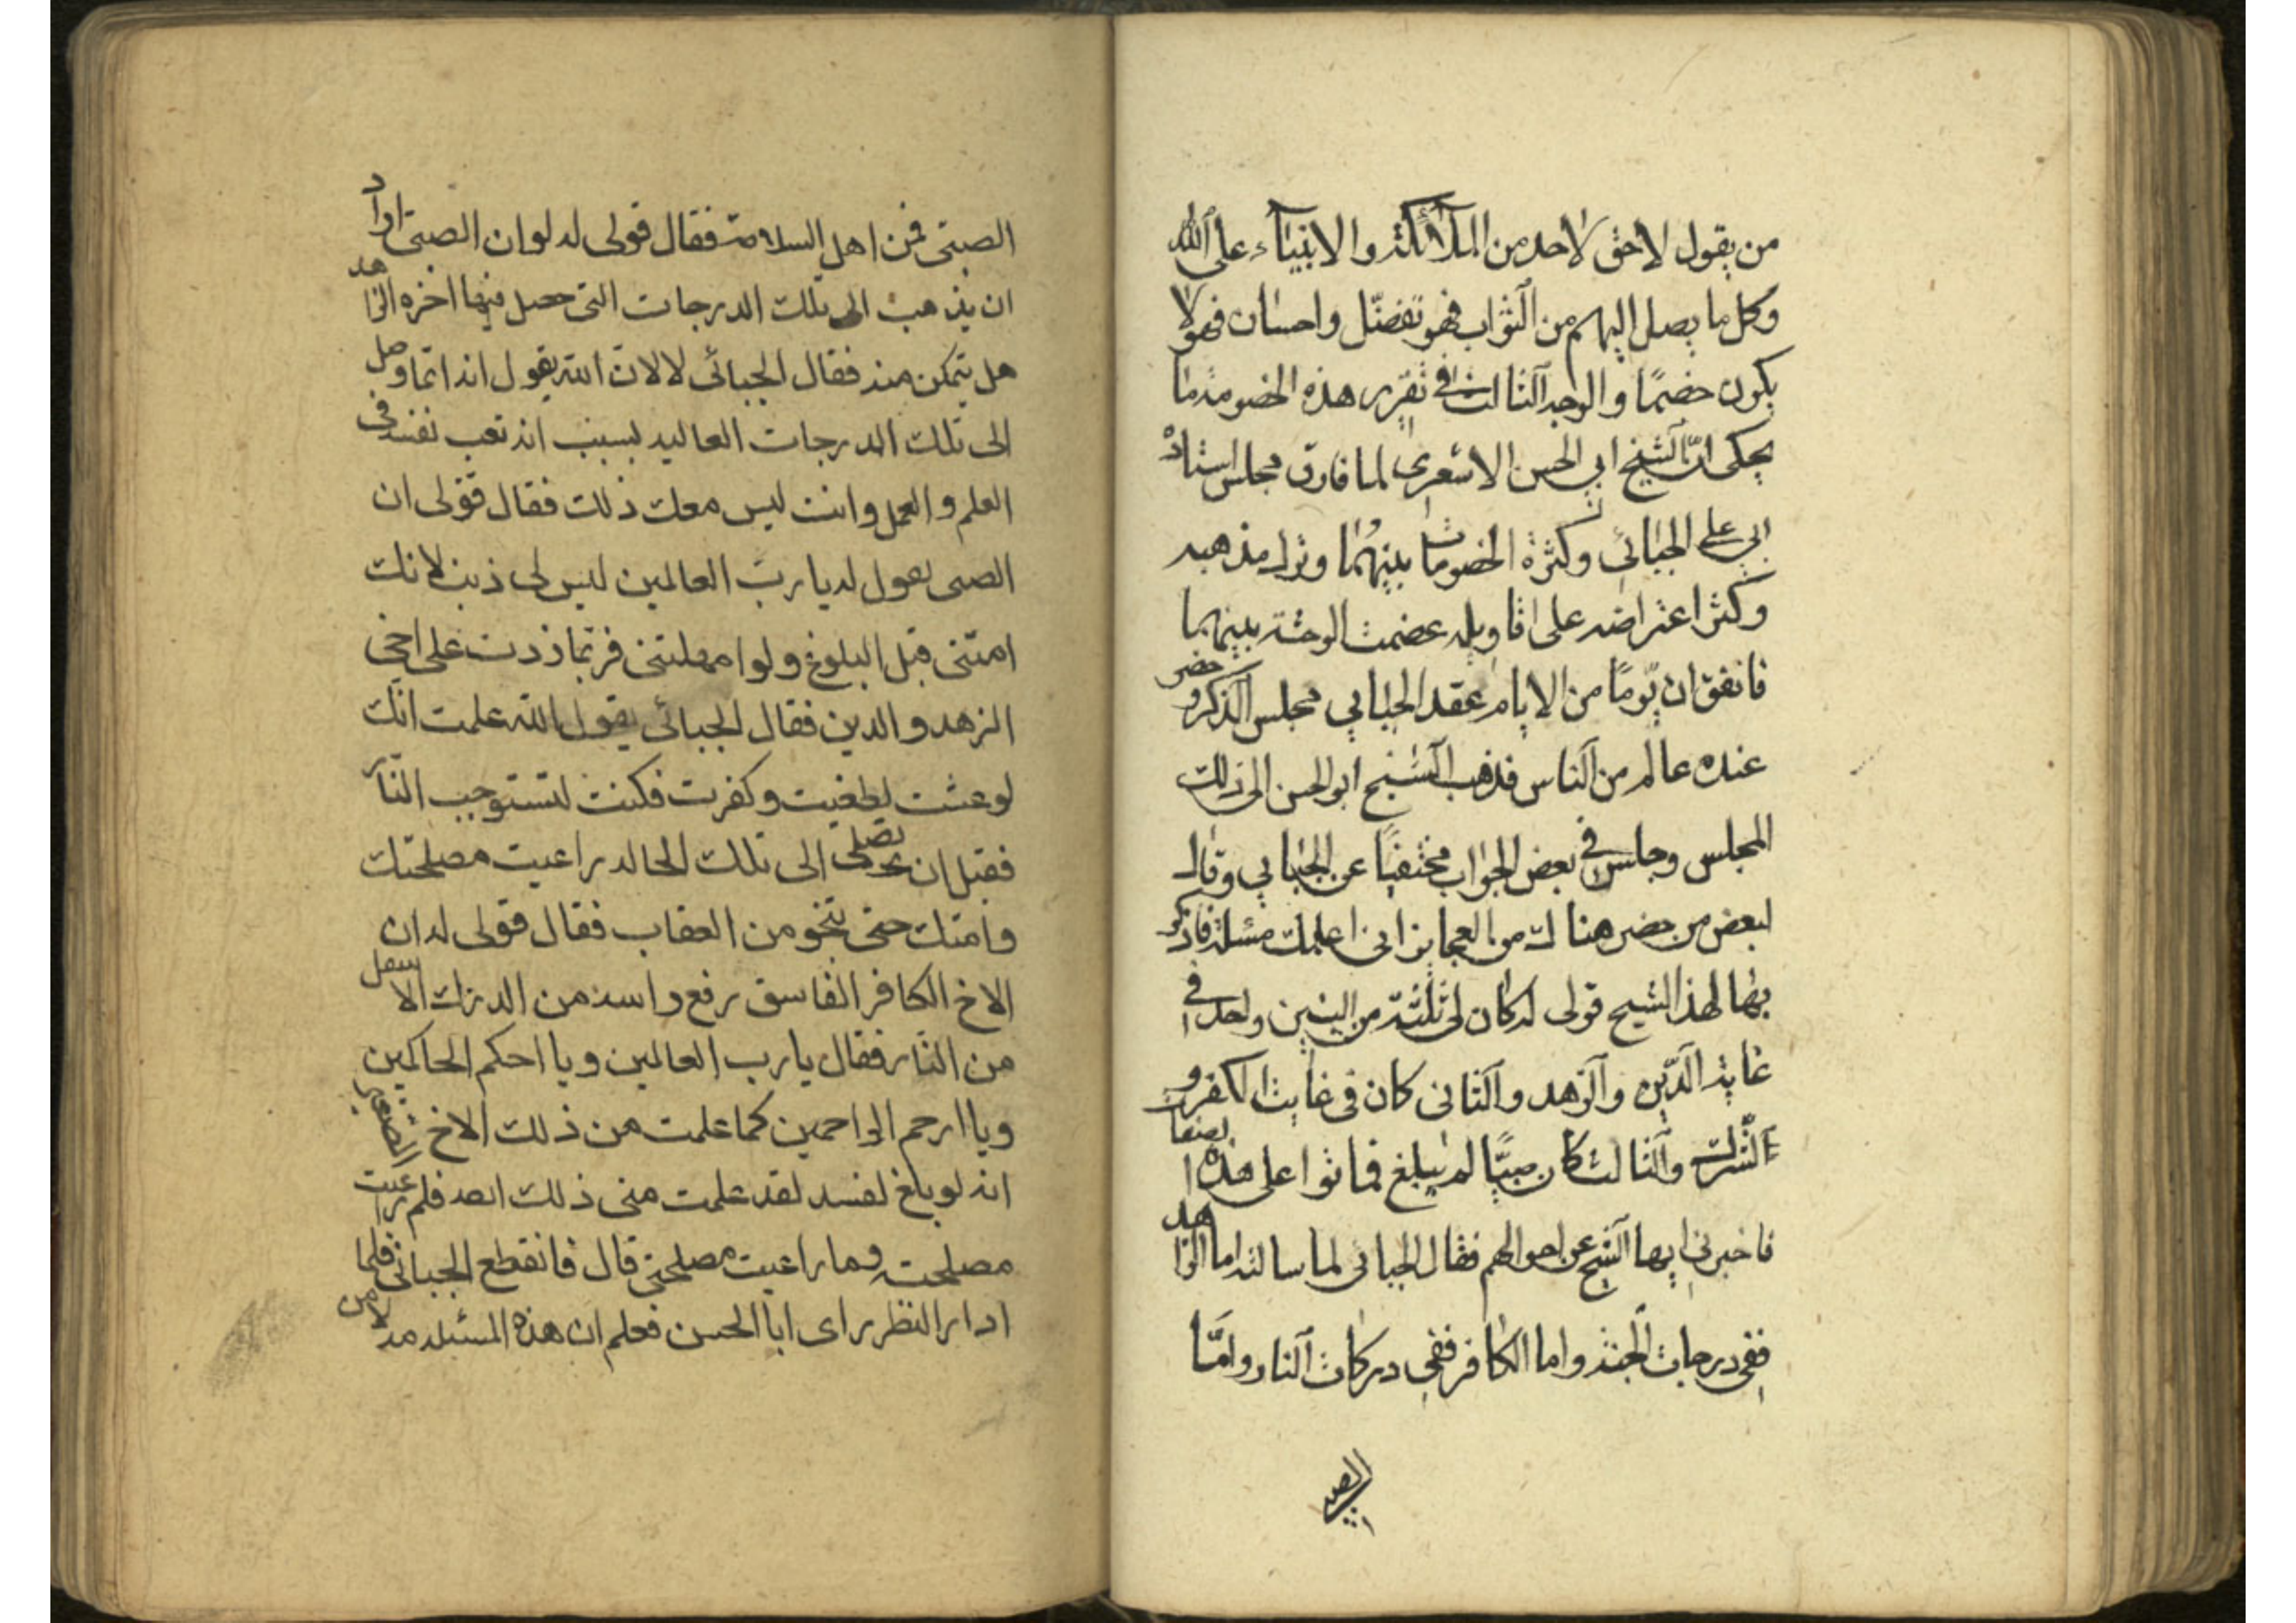 من يقول لا حق لاحد من الملائكة والانبياء على الله
وكل ما يصل اليهم من الثواب فهو تفضّل واحسان فهو لا
يكون خصمًا والوجه الثالث في تقرير هذه الخصومة ما
يحكى انّ الشيخ ابي الحسن الاشعري لما فارق مجلس استاذه
ابي علي الجبائي وكثرة الخصومات بينهما وترك مذهبه
وكثر اعتراضه على اقاويله عضمت الوحشة بينهما
فاتفق ان يومًا من الايام عقد الجبايي مجلس الذكر وحضر
عنده عالم من الناس فذهب الشيخ ابو الحسن الى ذلك
المجلس وجلس في بعض الجواب مختفيًا عن الجبايي وقال
لبعض من حضر هناك من العجايز اني اعلمك مسئلة فاذكر
بها لهذا الشيح قولى له كان لى ثلثة من البنين واحد في
غاية الدّين والزهد والثانى كان فى غايت الكفر و
الشرك والثالث كان صبيًا لم يبلغ فماتوا على هذه الصفات
فاخبرنى ايها الشيخ عن احوالهم فقال الجبائى لما سالته اما الزاهد
ففى درجات الجنة واما الكافر ففى دركات النار وامّا
الصبى
الصبتى فمن اهل السلامة فقال قولى له لو ان الصبى اراد
ان يذهب الى تلك الدرجات التى حصل فيها اخره الزاهد
هل يتمكن منه فقال الجبائى لا لانّ الله يقول انه انما وصل
الى تلك الدرجات العاليه بسبب انه تعب نفسه فى
العلم و العمل وانت ليس معك ذلك فقال فقولى ان
الصبى يقول له يا ربّ العالمين ليس لى ذنب لانك
امتنى قبل البلوغ ولو امهلتنى فربما زدت على اخى
الزهد و الدين فقال الجبائى يقول الله علمت انّك
لو عشت لطغيت وكفرت فكنت لتستوجب النار
فقبل ان تصل الى تلك الحاله راعيت مصلحتك
وامتك حتى تنجو من العقاب فقال فقولى له ان
الاخ الكافر الفاسق رفع راسه من الدركات الاسفل
من النار فقال يا رب العالمين ويا احكم الحاكمين
ويا ارحم الراحمين كما علمت من ذلك الاخ الصغير
انه لو بلغ لفسد لقد علمت منى ذلك ايضه فلم راعيت
مصلحته وما راعيت مصلحتى قال فانقطع الجبائى فلما
ادار النظر راى ابا الحسن فعلم ان هذه المسئله منه لا من